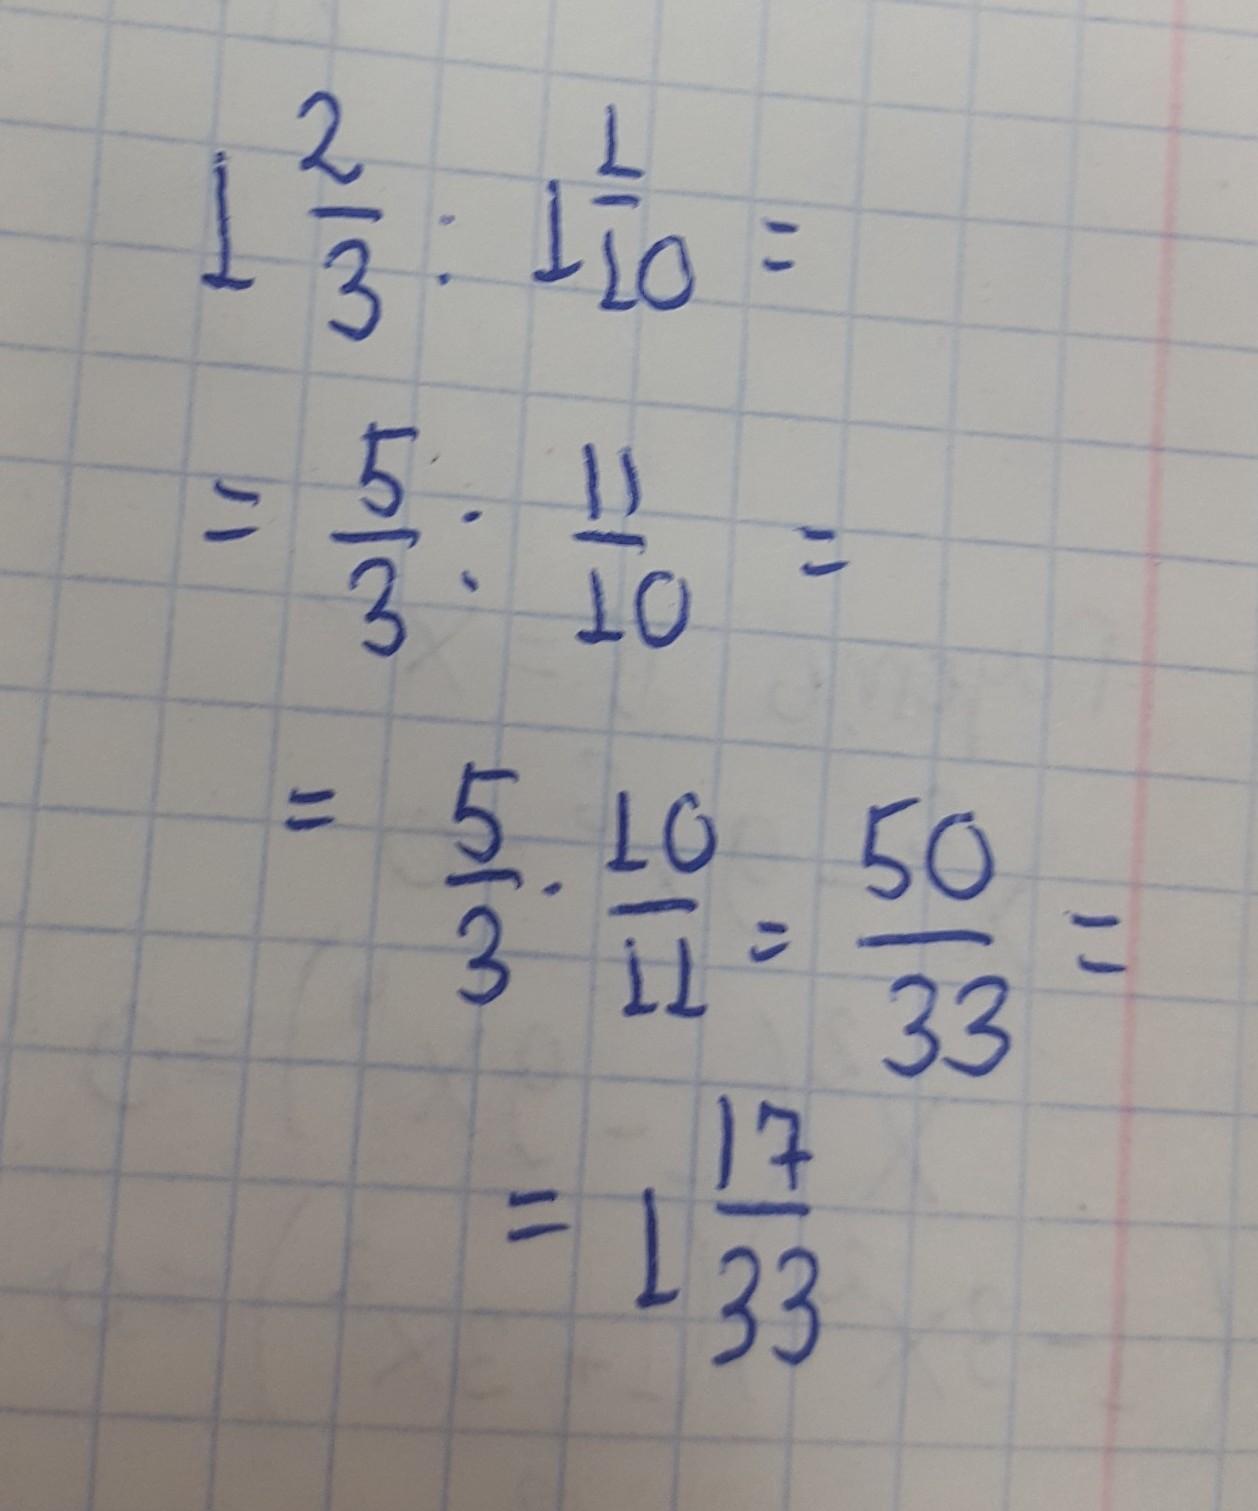 1 2/3 : 1 1/10 =
= 5/3 : 11/10 =
= 5/3 · 10/11 = 50/33 =
= 1 17/33